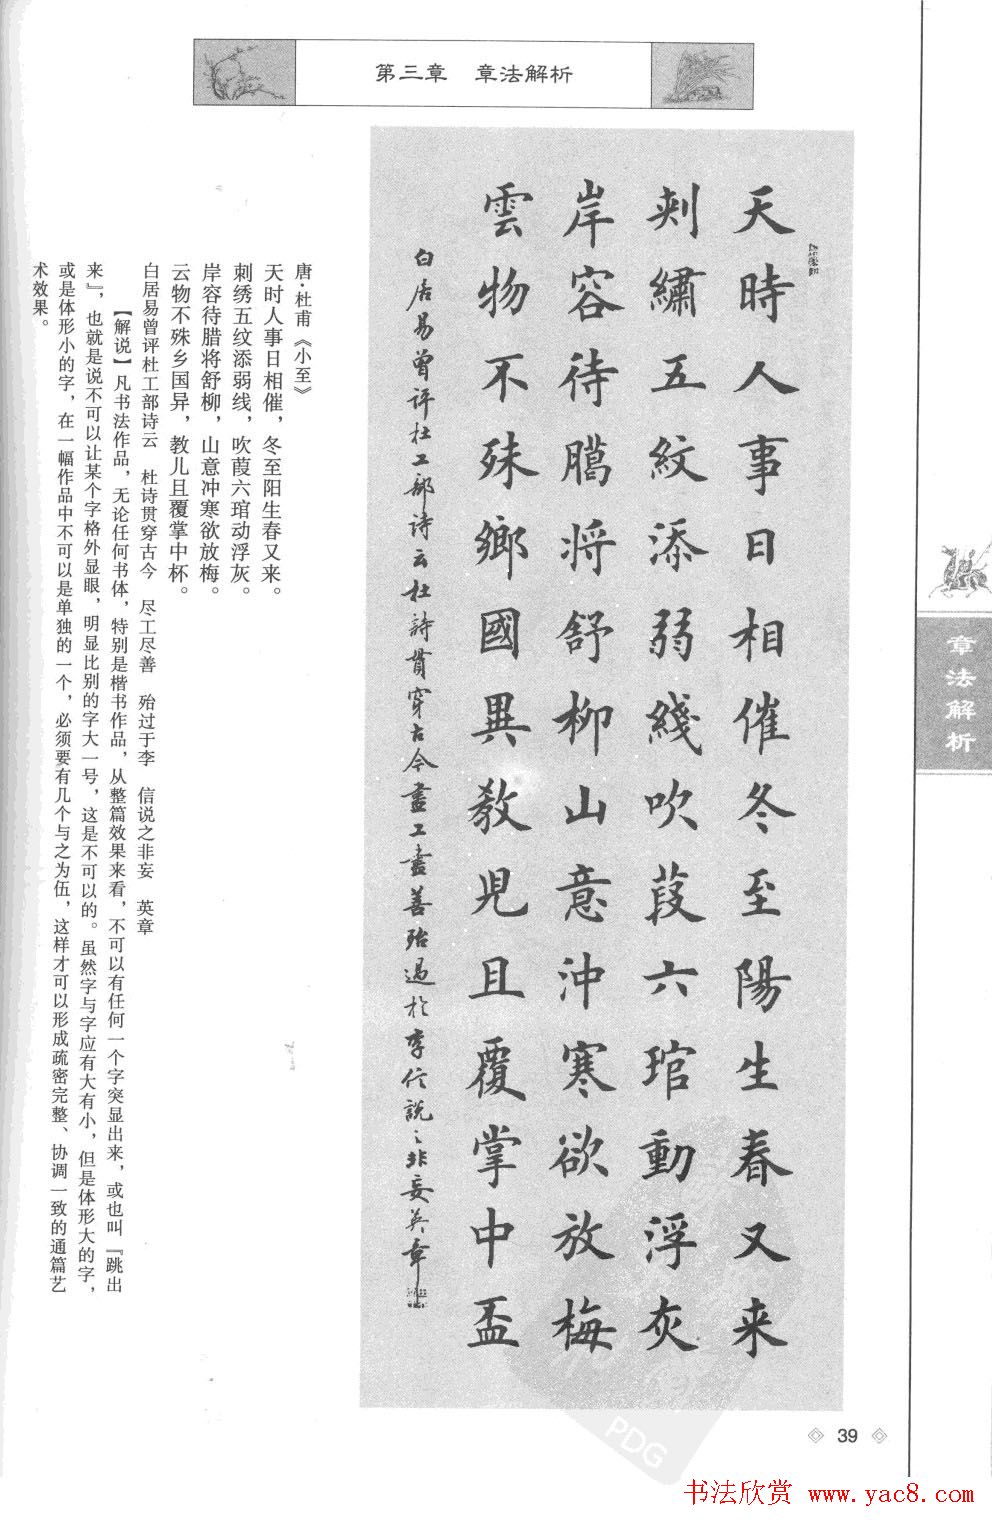 第三章 章法解析
天時人事日相催冬至陽生春又来
刾繡五紋添弱綫吹葭六琯動浮灰
岸容待臈将舒柳山意沖寒欲放梅
雲物不殊鄉國異教児且覆掌中盃
白居易曾评杜工部诗云杜詩貫穿古今盡工盡善殆過於李信説之非妄英章
唐·杜甫《小至》
天时人事日相催，冬至阳生春又来。
刺绣五纹添弱线，吹葭六琯动浮灰。
岸容待腊将舒柳，山意冲寒欲放梅。
云物不殊乡国异，教儿且覆掌中杯。
白居易曾评杜工部诗云 杜诗贯穿古今 尽工尽善 殆过于李 信说之非妄 英章
【解说】凡书法作品，无论任何书体，特别是楷书作品，从整篇效果来看，不可以有任何一个字突显出来，或也叫『跳出
来』，也就是说不可以让某个字格外显眼，明显比别的字大一号，这是不可以的。虽然字与字应有大有小，但是体形大的字，
或是体形小的字，在一幅作品中不可以是单独的一个，必须要有几个与之为伍，这样才可以形成疏密完整、协调一致的通篇艺
术效果。
章法解析
39
PDG
书法欣赏 www.yac8.com